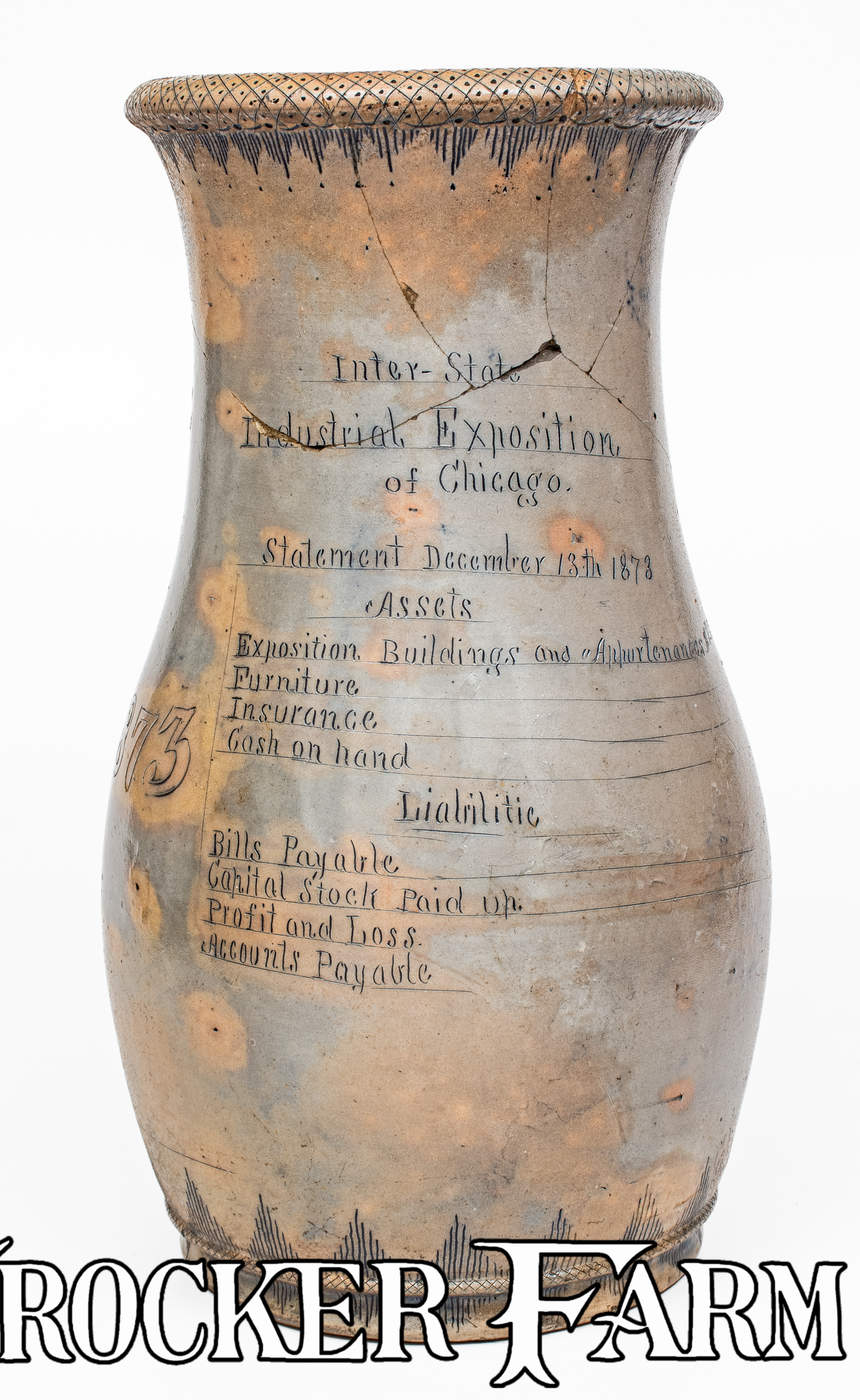 Inter-State
Industrial Exposition
of Chicago.
Statement December 13th 1873
Assets
Exposition Buildings and Appurtenances
Furniture
Insurance
Cash on hand
873
Liabilitie
Bills Payable
Capital Stock Paid up.
Profit and Loss.
Accounts Payable
ROCKER FARM